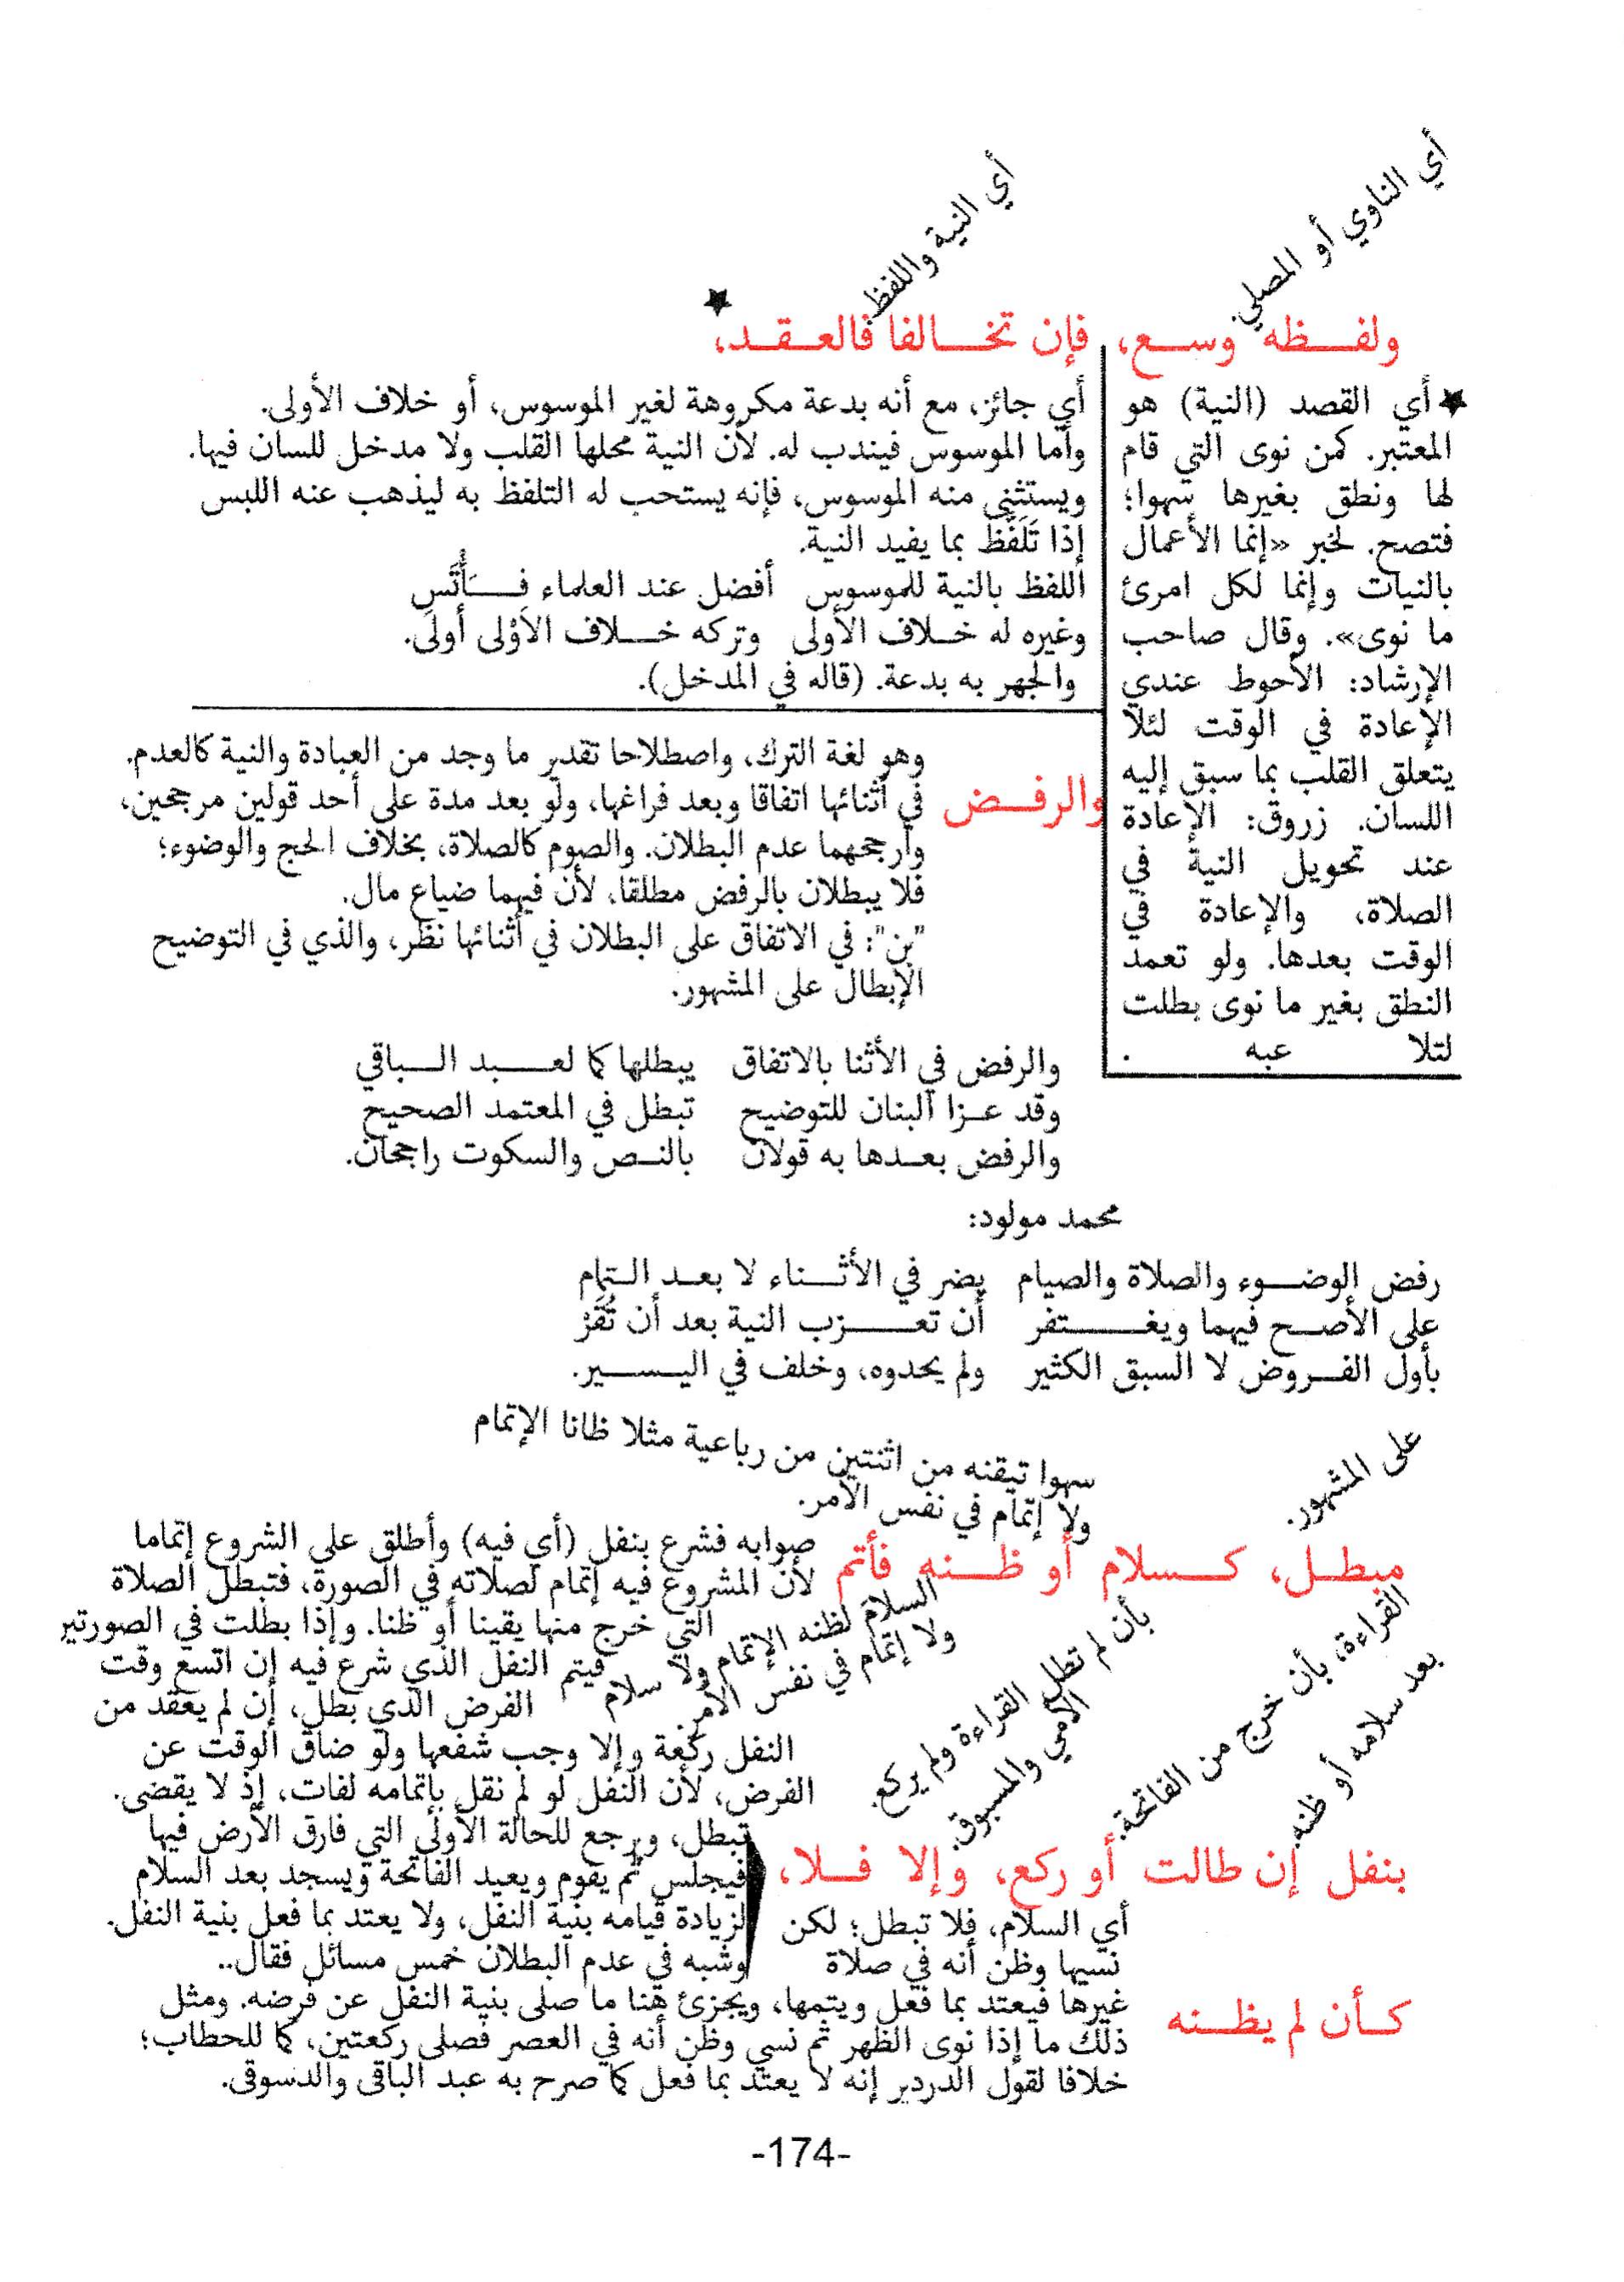 أي الناوي أو المصلي.
أي النية واللفظ.
ولفـــظه وســـع، فإن تخـــالفا فالعـقـد، ★
★ أي القصد (النية) هو
المعتبر. كمن نوى التي قام
لها ونطق بغيرها سهوا؛
فتصح. لخبر «إنما الأعمال
بالنيات وإنما لكل امرئ
ما نوى». وقال صاحب
الإرشاد: الأحوط عندي
الإعادة في الوقت لئلا
يتعلق القلب بما سبق إليه
اللسان. زروق: الإعادة
عند تحويل النية في
الصلاة، والإعادة في
الوقت بعدها. ولو تعمد
النطق بغير ما نوى بطلت
لتلا عبه .
أي جائز، مع أنه بدعة مكروهة لغير الموسوس، أو خلاف الأولى.
وأما الموسوس فيندب له. لأن النية محلها القلب ولا مدخل للسان فيها.
ويستثنى منه الموسوس، فإنه يستحب له التلفظ به ليذهب عنه اللبس
إذا تَلَفَّظ بما يفيد النية.
اللفظ بالنية للموسوس أفضل عند العلماء فــأْتَسِ
وغيره له خـلاف الأولى وتركه خـــلاف الاَوْلى أولى.
والجهر به بدعة. (قاله في المدخل).
والرفــض
وهو لغة الترك، واصطلاحا تقدير ما وجد من العبادة والنية كالعدم.
في أثنائها اتفاقا وبعد فراغها، ولو بعد مدة على أحد قولين مرجحين،
وأرجحهما عدم البطلان. والصوم كالصلاة، بخلاف الحج والوضوء؛
فلا يبطلان بالرفض مطلقا، لأن فيهما ضياع مال.
"بن": في الاتفاق على البطلان في أثنائها نظر، والذي في التوضيح
الإبطال على المشهور.
والرفض في الأثنا بالاتفاق يبطلها كما لعـــبد البـــاقي
وقد عـزا البنان للتوضيح تبطل في المعتمد الصحيح
والرفض بعـدها به قولان بالنـص والسكوت راجحان.
محمد مولود:
رفض الوضـــوء والصلاة والصيام يضر في الأثـــناء لا بعـد التمام
على الأصـح فيهما ويغـــــتفر أن تعــــزب النية بعد أن تُقَرْ
بأول الفــروض لا السبق الكثير ولم يحدوه، وخلف في اليـــسير.
على المشهور.
سهوا تيقنه من اثنتين من رباعية مثلا ظانا الإتمام
ولا إتمام في نفس الأمر.
مبطـل، كـــسلام أو ظـــنه فأتم
صوابه فشرع بنفل (أي فيه) وأطلق على الشروع إتماما
لأن المشروع فيه إتمام لصلاته في الصورة، فتبطل الصلاة
التي خرج منها يقينا أو ظنا. وإذا بطلت في الصورتين
فيتم النفل الذي شرع فيه إن اتسع وقت
الفرض الذي بطل، إن لم يعقد من
النفل ركعة وإلا وجب شفعها ولو ضاق الوقت عن
الفرض، لأن النفل لو لم نقل بإتمامه لفات، إذ لا يقضى.
السلام لظنه الإتمام ولا سلام
ولا إتمام في نفس الأمر.
بأن لم تطل القراءة ولم يركع.
الأمي والمسبوق.
القراءة، بأن خرج من الفاتحة.
بعد سلامه أو ظنه.
بنفل إن طالت أو ركع، وإلا فـلا،
تبطل، ويرجع للحالة الأولى التي فارق الأرض فيها
فيجلس ثم يقوم ويعيد الفاتحة ويسجد بعد السلام
لزيادة قيامه بنية النفل، ولا يعتد بما فعل بنية النفل.
وشبه في عدم البطلان خمس مسائل فقال..
كـأن لم يظـــنه
أي السلام، فلا تبطل؛ لكن
نسيها وظن أنه في صلاة
غيرها فيعتد بما فعل ويتمها، ويجزئ هنا ما صلى بنية النفل عن فرضه. ومثل
ذلك ما إذا نوى الظهر ثم نسي وظن أنه في العصر فصلى ركعتين، كما للحطاب؛
خلافا لقول الدردير إنه لا يعتد بما فعل كما صرح به عبد الباقي والدسوقي.
-174-